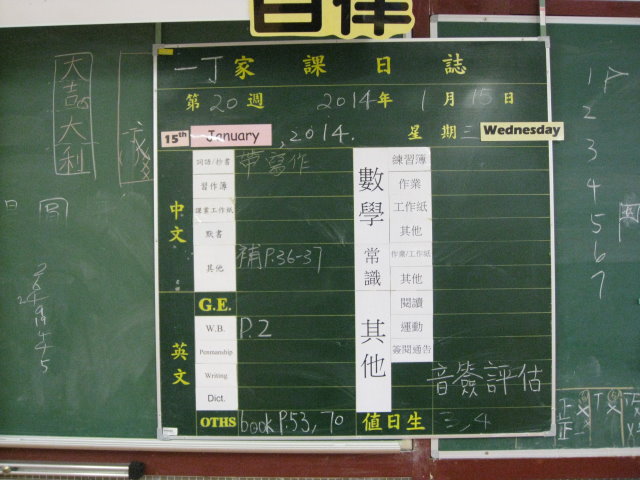 自律
一丁家課日誌
第20週 2014年1月15日
15th January, 2014. 星期三 Wednesday
大吉大利
中文
詞語/抄書 帶寫作
習作簿
課業工作紙
默書
其他 補P.36-37
G.E.
英文
W.B. P.2
Penmanship
Writing
Dict.
OTHS book P.53, 70
數學
練習簿
作業
工作紙
其他
常識
作業/工作紙
其他
其他
閱讀
運動
簽閱通告
音簽評估
值日生 三, 4
1
2
3
4
5
6
7